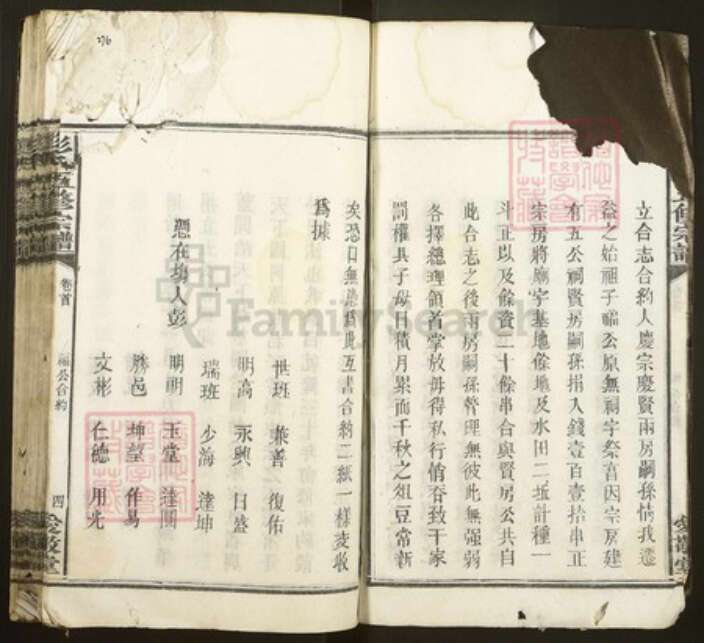 立合志合約人慶宗慶賢兩房嗣孫情我遷
益之始祖子福公原無祠宇祭享因宗房建
有五公祠賢房嗣孫捐入錢壹百壹拾串正
宗房將廟宇基地餘地及水田二坵計種一
斗正以及餘資二十餘串合與賢房公共自
此合志之後兩房嗣孫管理無彼此無强弱
各擇總理領首掌放毋得私行侵吞致干家
罰權其子母日積月累而千秋之俎豆常新
矣恐口無憑爲此互書合約二紙一樣爰收
爲據
憑在塲人彭
世班 兼善 復佑
明高 永興 日盛
瑞班 少海 達坤
明朝 玉堂 達國
勝邑 坤望 作易
文彬 仁德 用光
彭氏五修宗譜
卷首
福公合約
四
愛敬堂
修宗譜
愛敬堂
FamilySearch